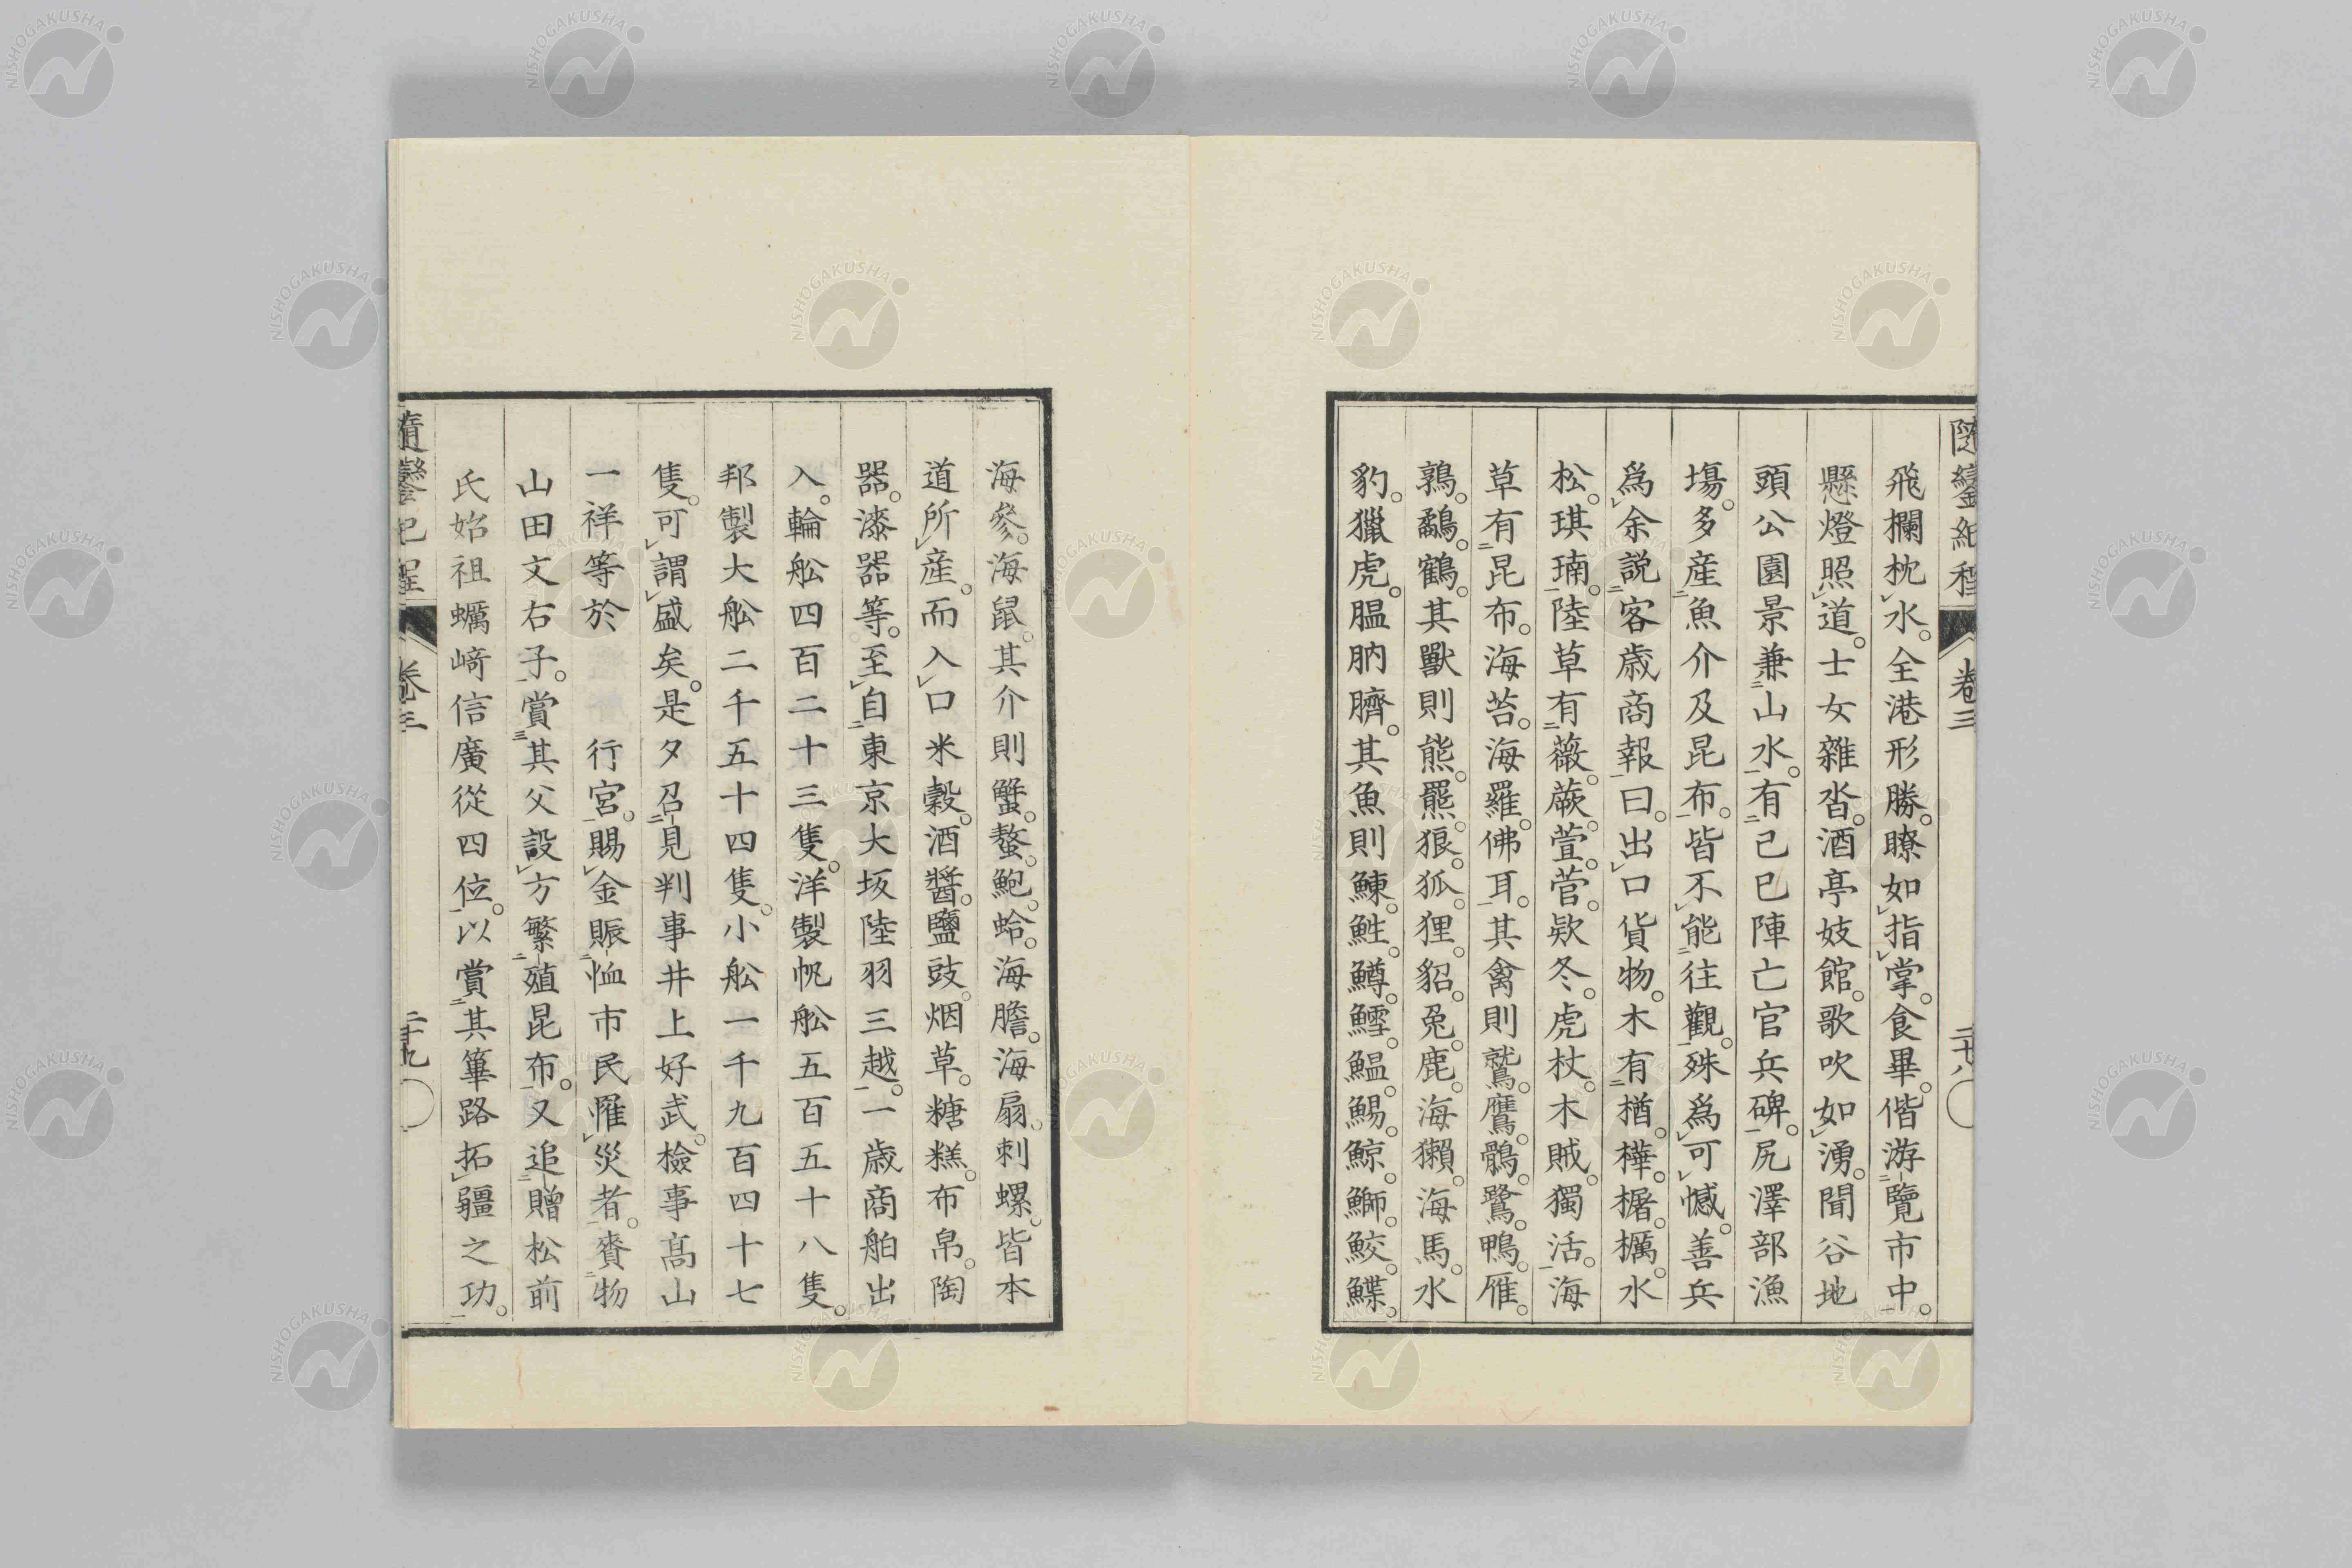 隨鑾紀程 卷三 二十八
飛欄枕水。全港形勝。瞭如指掌。食畢。偕游覽市中。
懸燈照道。士女雜沓。酒亭妓館。歌吹如湧。聞谷地
頭公園景兼山水。有己巳陣亡官兵碑。尻澤部漁
塲。多産魚介及昆布。皆不能往觀。殊爲可憾。善兵
爲余説客歳商報曰。出口貨物。木有楢。樺。椐。欅。水
松。琪㻞。陸草有薇。蕨。萱。菅。欵冬。虎杖。木賊。獨活。海
草有昆布。海苔。海羅。佛耳。其禽則鷲。鷹。鶻。鷺。鴨。雁。
鶉。鷸。鶴。其獸則熊。羆。狼。狐。狸。貂。兔。鹿。海獺。海馬。水
豹。獵虎。膃肭臍。其魚則鰊。鮏。鱒。鱈。鰛。鯣。鯨。鰤。鮫。鰈。
海參。海鼠。其介則蟹。螯。鮑。蛤。海膽。海扇。刺螺。皆本
道所産。而入口米穀。酒醬。鹽豉。烟草。糖糕。布帛。陶
器。漆器等。至自東京大坂陸羽三越。一歳商舶出
入。輪舩四百二十三隻。洋製帆舩五百五十八隻。
邦製大舩二千五十四隻。小舩一千九百四十七
隻。可謂盛矣。是夕召見判事井上好武。檢事髙山
一祥等於 行宮。賜金賑恤市民罹災者。賚物
山田文右子。賞其父設方繁殖昆布。又追贈松前
氏始祖蠣﨑信廣從四位。以賞其篳路拓疆之功。
隨鑾紀程 卷三 二十九
NISHOGAKUSHA